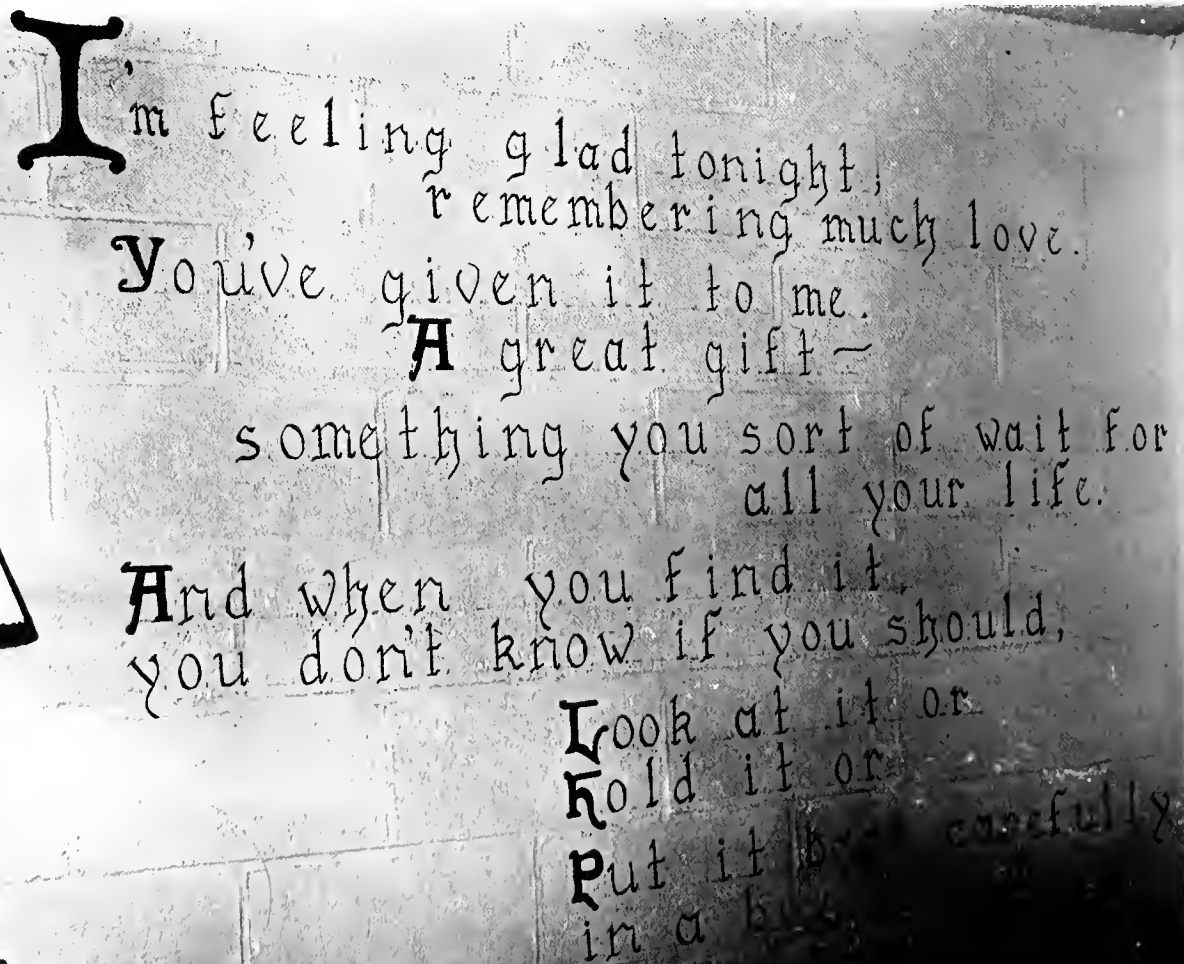 I'm feeling glad tonight,
remembering much love.
You've given it to me.
A great gift—
something you sort of wait for
all your life.
And when you find it,
you don't know if you should,
Look at it or
hold it or
Put it carefully
in a